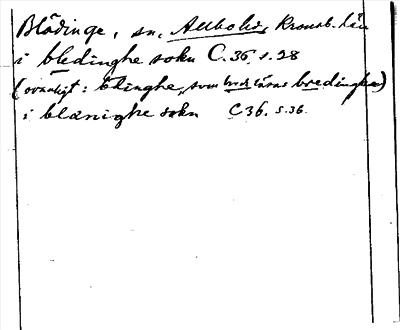 Blädinge, sn, Allbo hd, Kronob. län
i bledinghe sokn C. 36, s. 28
(ovanligt: blinghe, som läsas bredinghe)
i blænighe sokn C 36. s. 36.